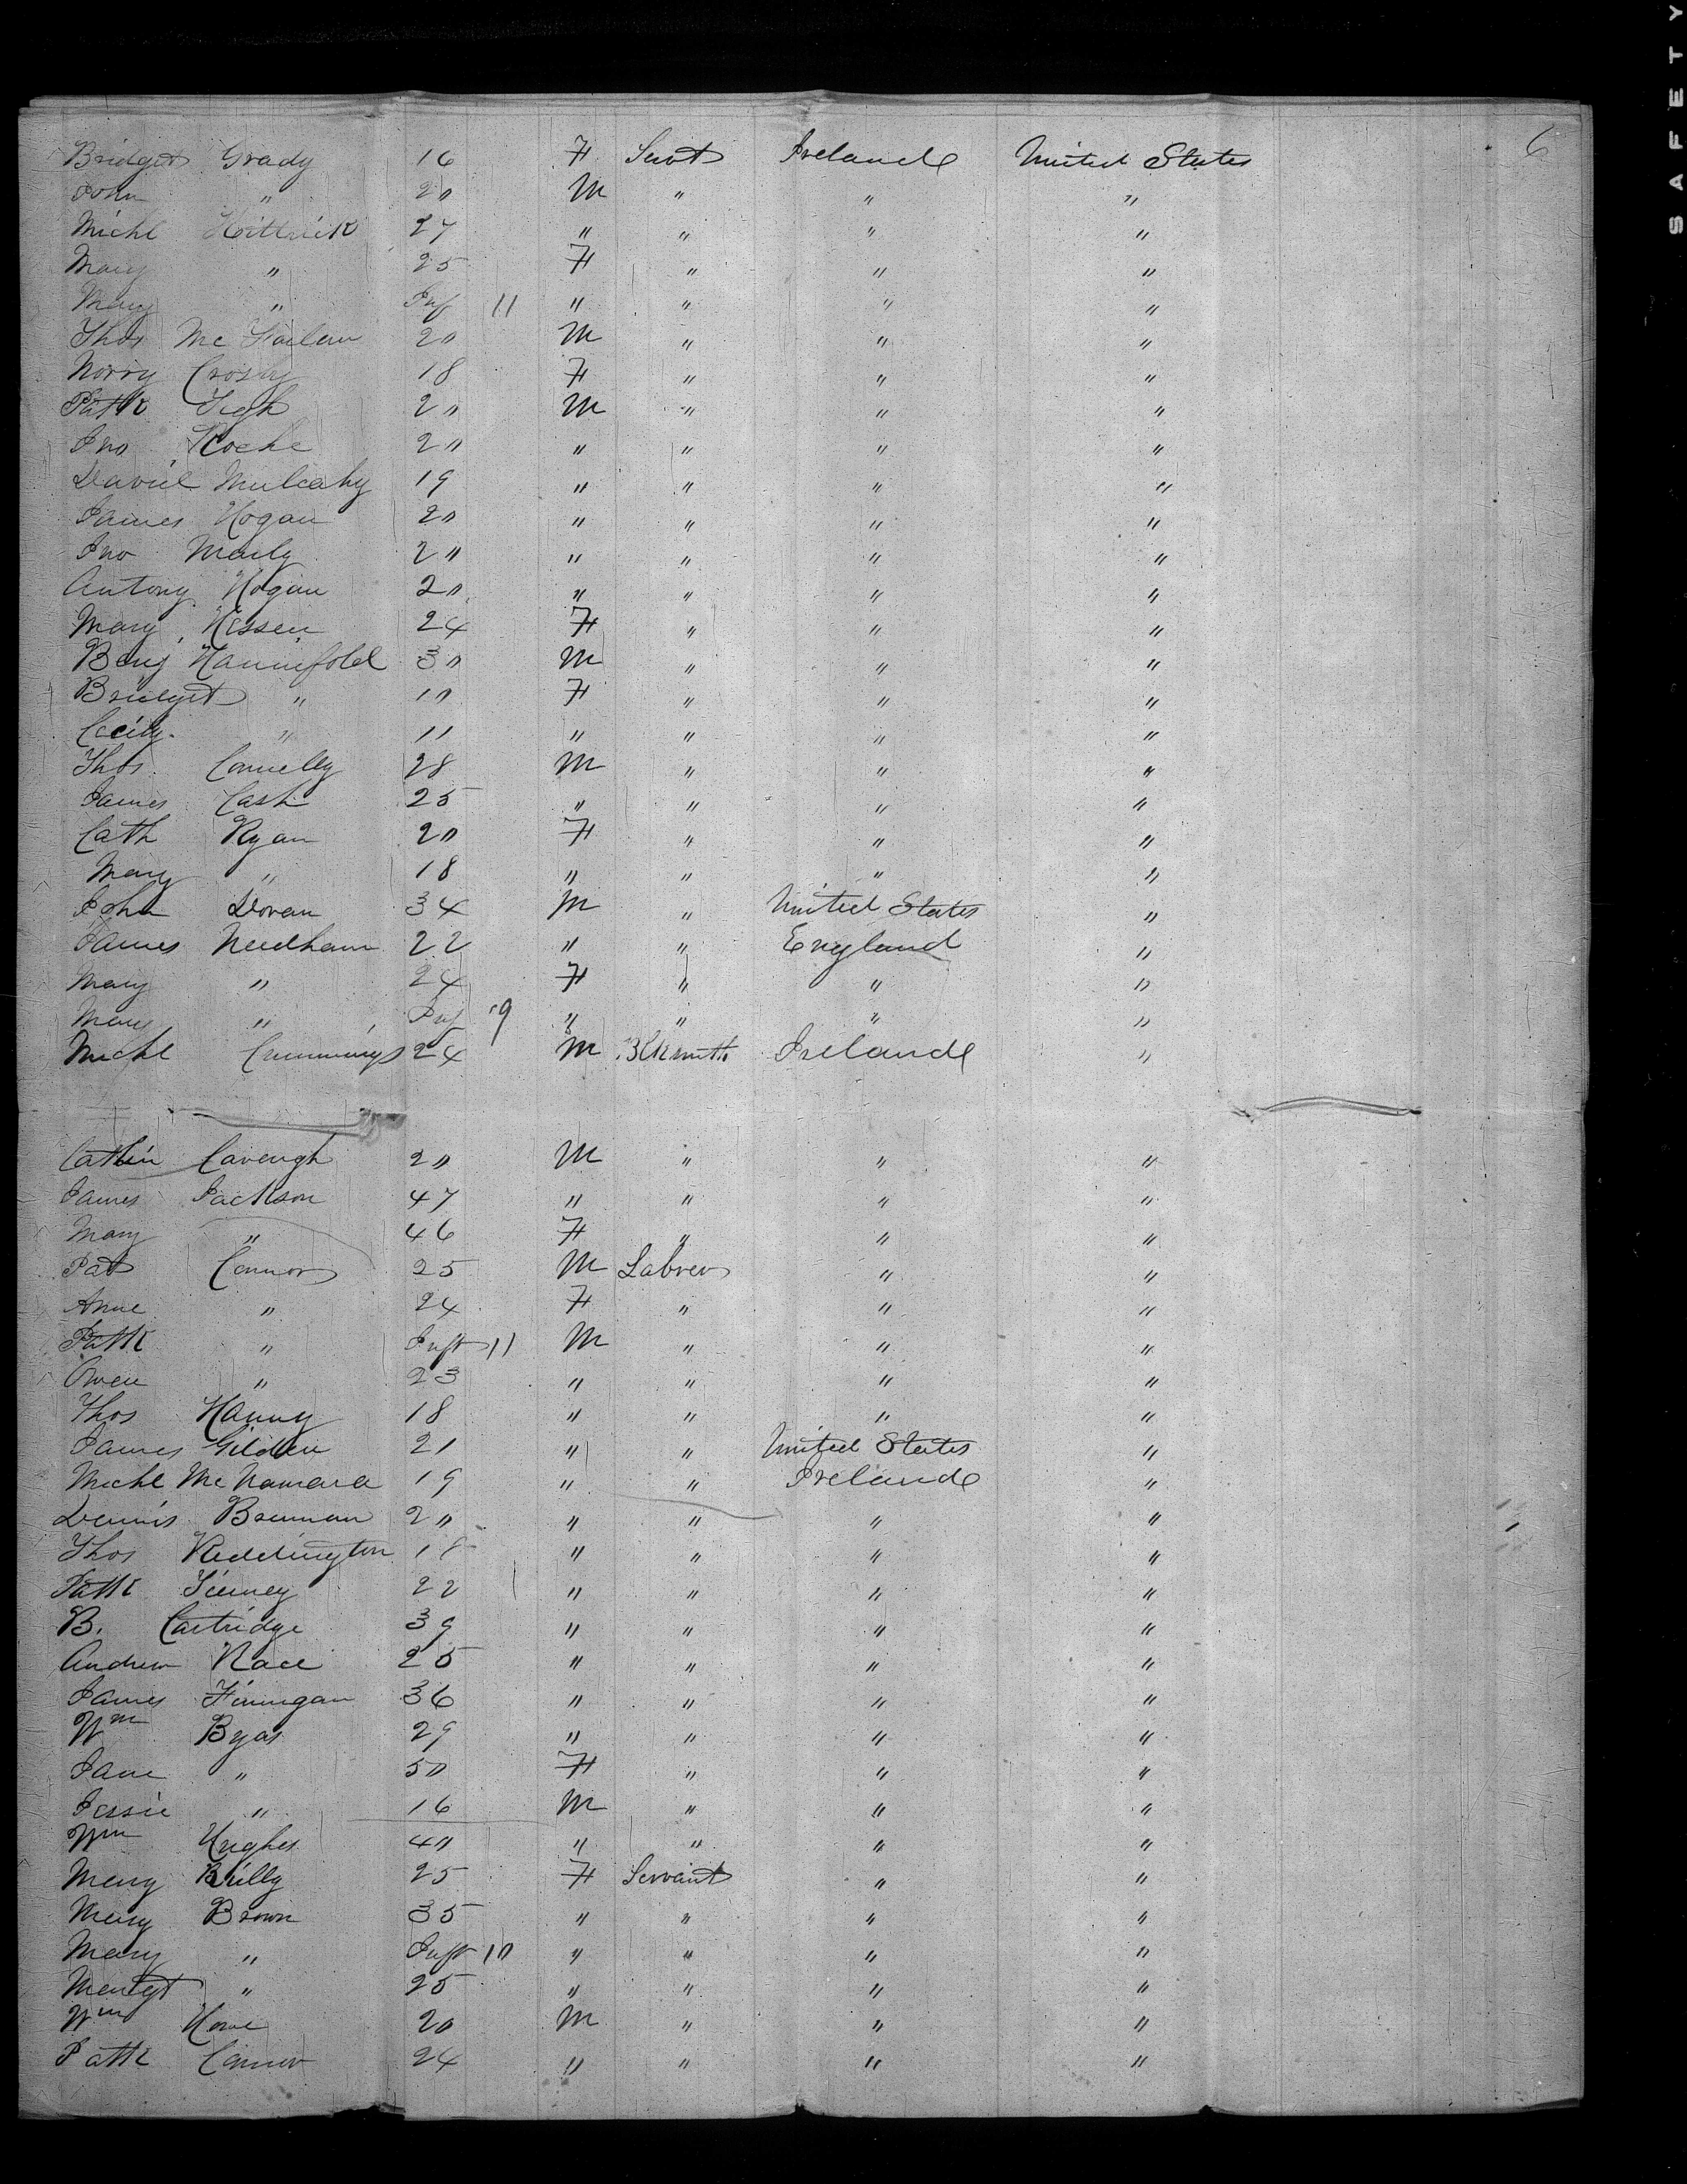 6
Bridget Grady 16 F Servt Ireland United States
John " 20 M " " "
Michl Kittrick 27 " " " "
Mary " 25 F " " "
Mary " Inf 11 " " " "
Thos Mc 20 M " " "
Norry Crosby 18 F " " "
Patk Tigh 20 M " " "
Jno Roche 20 " " " "
David Mulcahy 19 " " " "
James Hogan 20 " " " "
Jno 20 " " " "
Antony Hogan 20 " " " "
Mary Hessen 24 F " " "
Benj Hannifold 30 M " " "
Bridget " 10 F " " "
Cecily " 11 " " " "
Thos Connelly 28 M " " "
James Cash 25 " " " "
Cath Ryan 20 F " " "
Mary " 18 " " " "
John Doran 34 M " United States "
James Needham 22 " " England "
Mary " 24 F " " "
Mary " Inf 9 " " " "
Michl Cummings 24 M Blksmith Ireland "
Cavengh 20 M " " "
James Jackson 47 " " " "
Mary " 46 F " " "
Pat Connor 25 M Labrer " "
Anne " 24 F " " "
Patk " Inft 11 M " " "
Owen " 23 " " " "
Thos Hanny 18 " " " "
James Gilden 21 " " United States "
Michl McNamara 19 " " Ireland "
Dennis Brennan 20 " " " "
Thos Reddington 18 " " " "
Patk Tierney 22 " " " "
B. Cartridge 39 " " " "
Andrew Race 25 " " " "
James Finnigan 36 " " " "
Wm Byas 29 " " " "
Jane " 50 F " " "
Jessie " 16 M " " "
Wm Hughes 40 " " " "
Mary Reilly 25 F Servant " "
Mary Brown 35 " " " "
Mary " Inft 10 " " " "
Margt " 25 " " " "
Wm Howe 20 M " " "
Patk Connor 24 " " " "
SAFETY